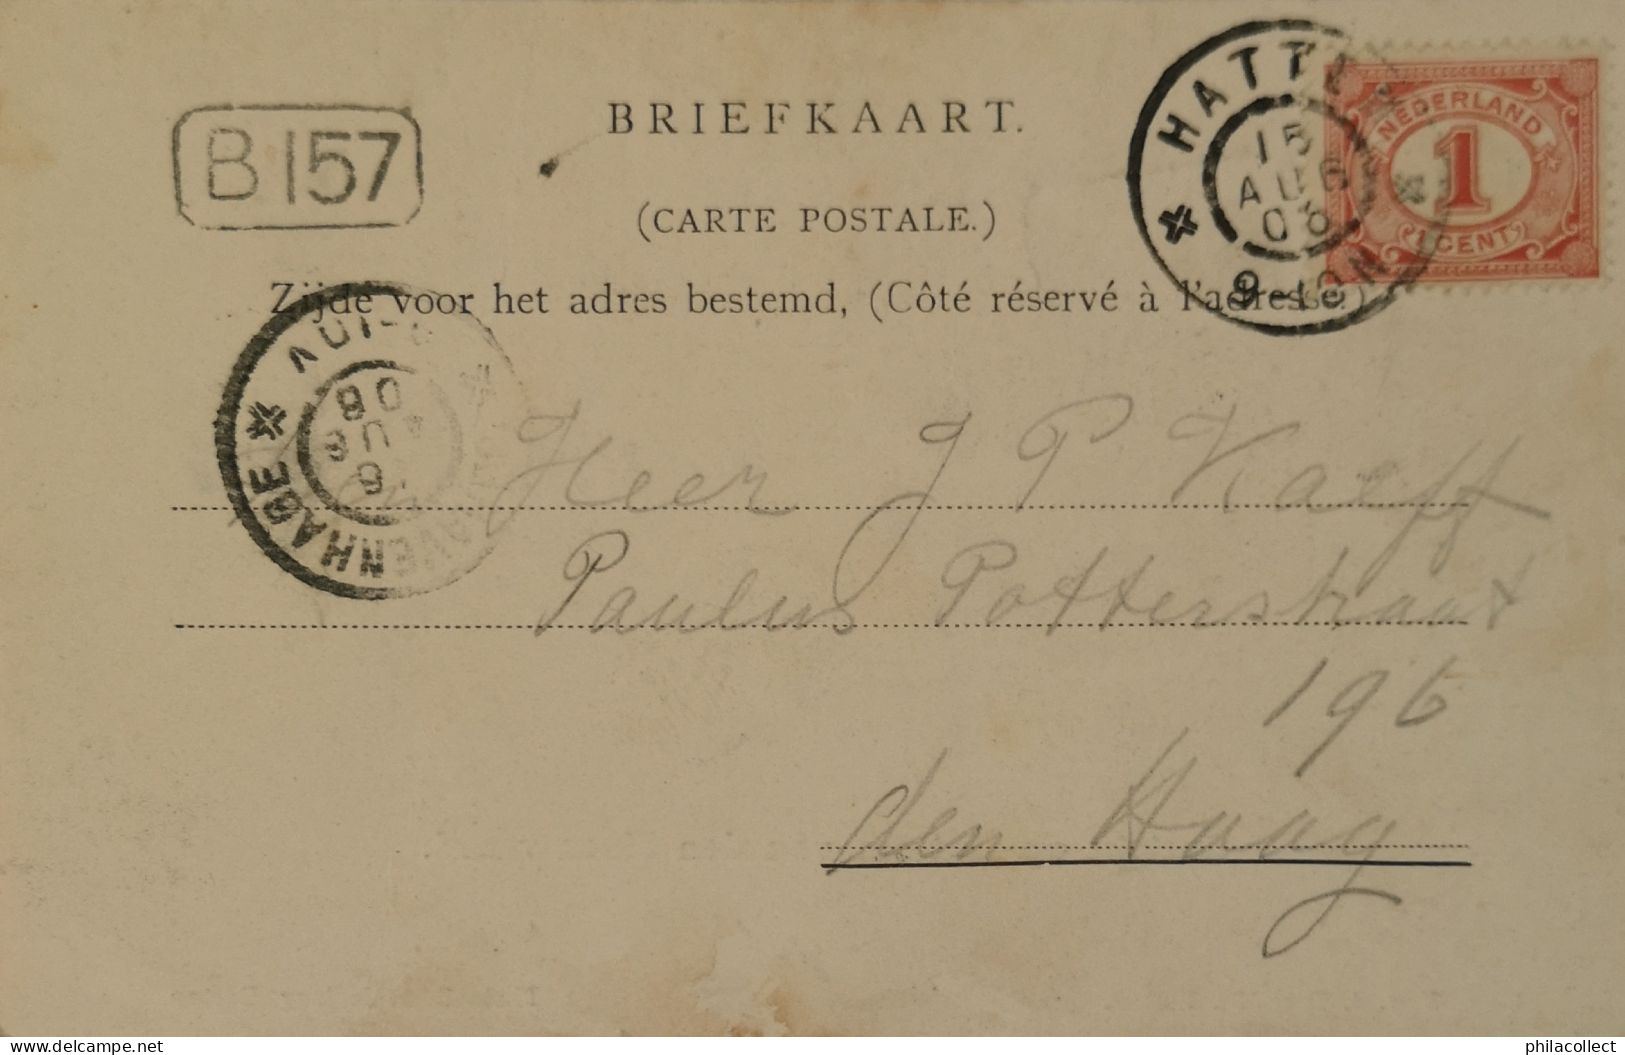 BRIEFKAART.
(CARTE POSTALE.)
Zijde voor het adres bestemd, (Côté réservé à l'adresse.)
B 157
HATTEM
15
AUG
08
9-10N
NEDERLAND
1
CENT
08
AUG
'S GRAVENHAGE
Heer J P Kaeff
Paulus Potterstraat
196
den Haag
delcampe.net
philacollect